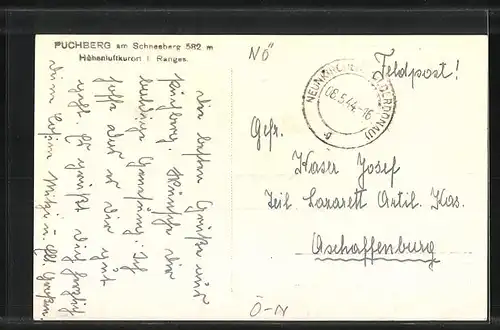 PUCHBERG am Schneeberg 582 m
Höhenluftkurort I. Ranges.
NÖ
Die besten Grüße aus
Puchberg. Wünsche dir
baldige Genesung. Ich
hoffe das es dir gut
geht. Es grüßt dich herzlich
deine Mitzi u.
NEUNKIRCHEN NIEDERDONAU
08.5.44-16
g
Feldpost!
Gefr.
Kaser Josef
Teil. Lazarett Artil. Kas.
Aschaffenburg
Ö-N